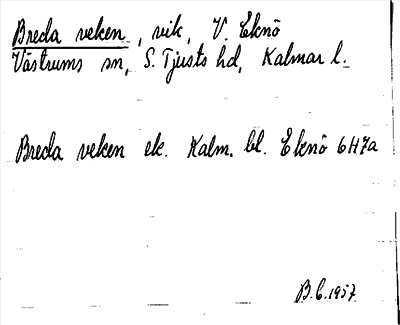 Breda veken, vik, V. Eknö
Västrums sn, S. Tjusts hd, Kalmar l.
Breda veken ek. Kalm. bl. Eknö 6H7a
B.C. 1957